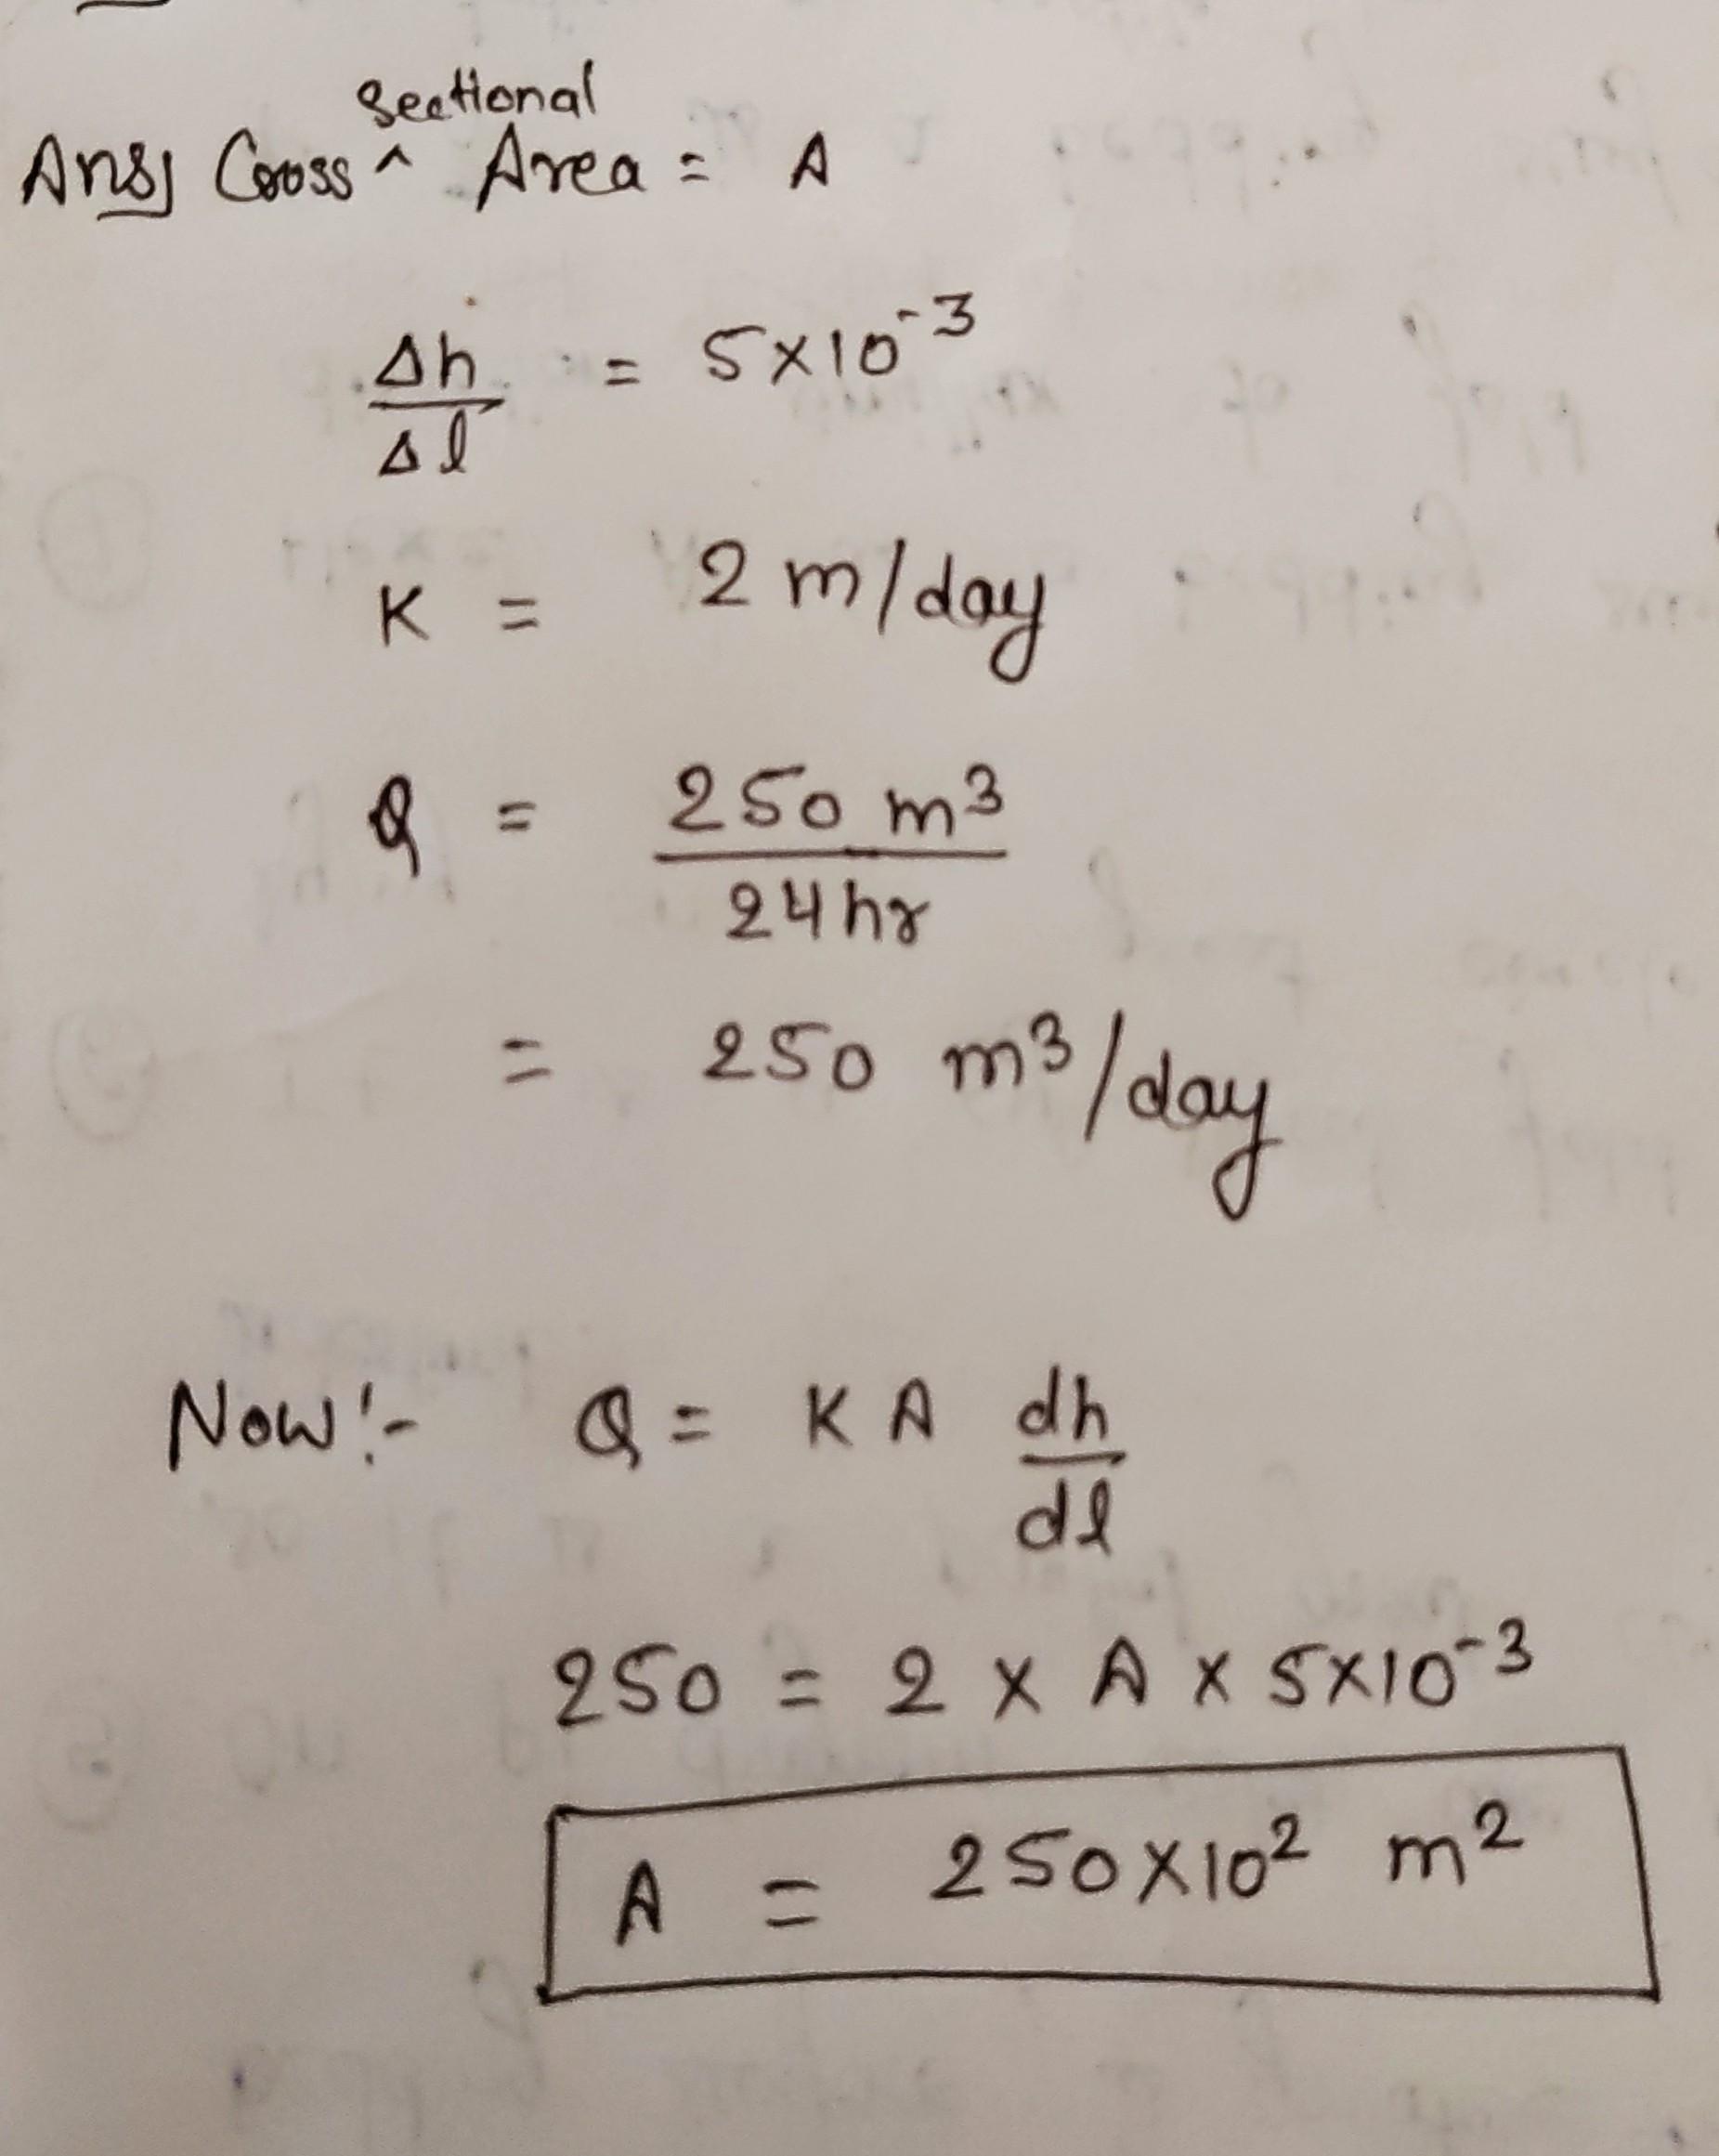 Ans] Cross ^ Sectional Area = A
Δh/Δl = 5×10⁻³
K = 2 m/day
Q = 250 m³/24hr
= 250 m³/day
Now:- Q = K A dh/dl
250 = 2 × A × 5×10⁻³
A = 250×10² m²